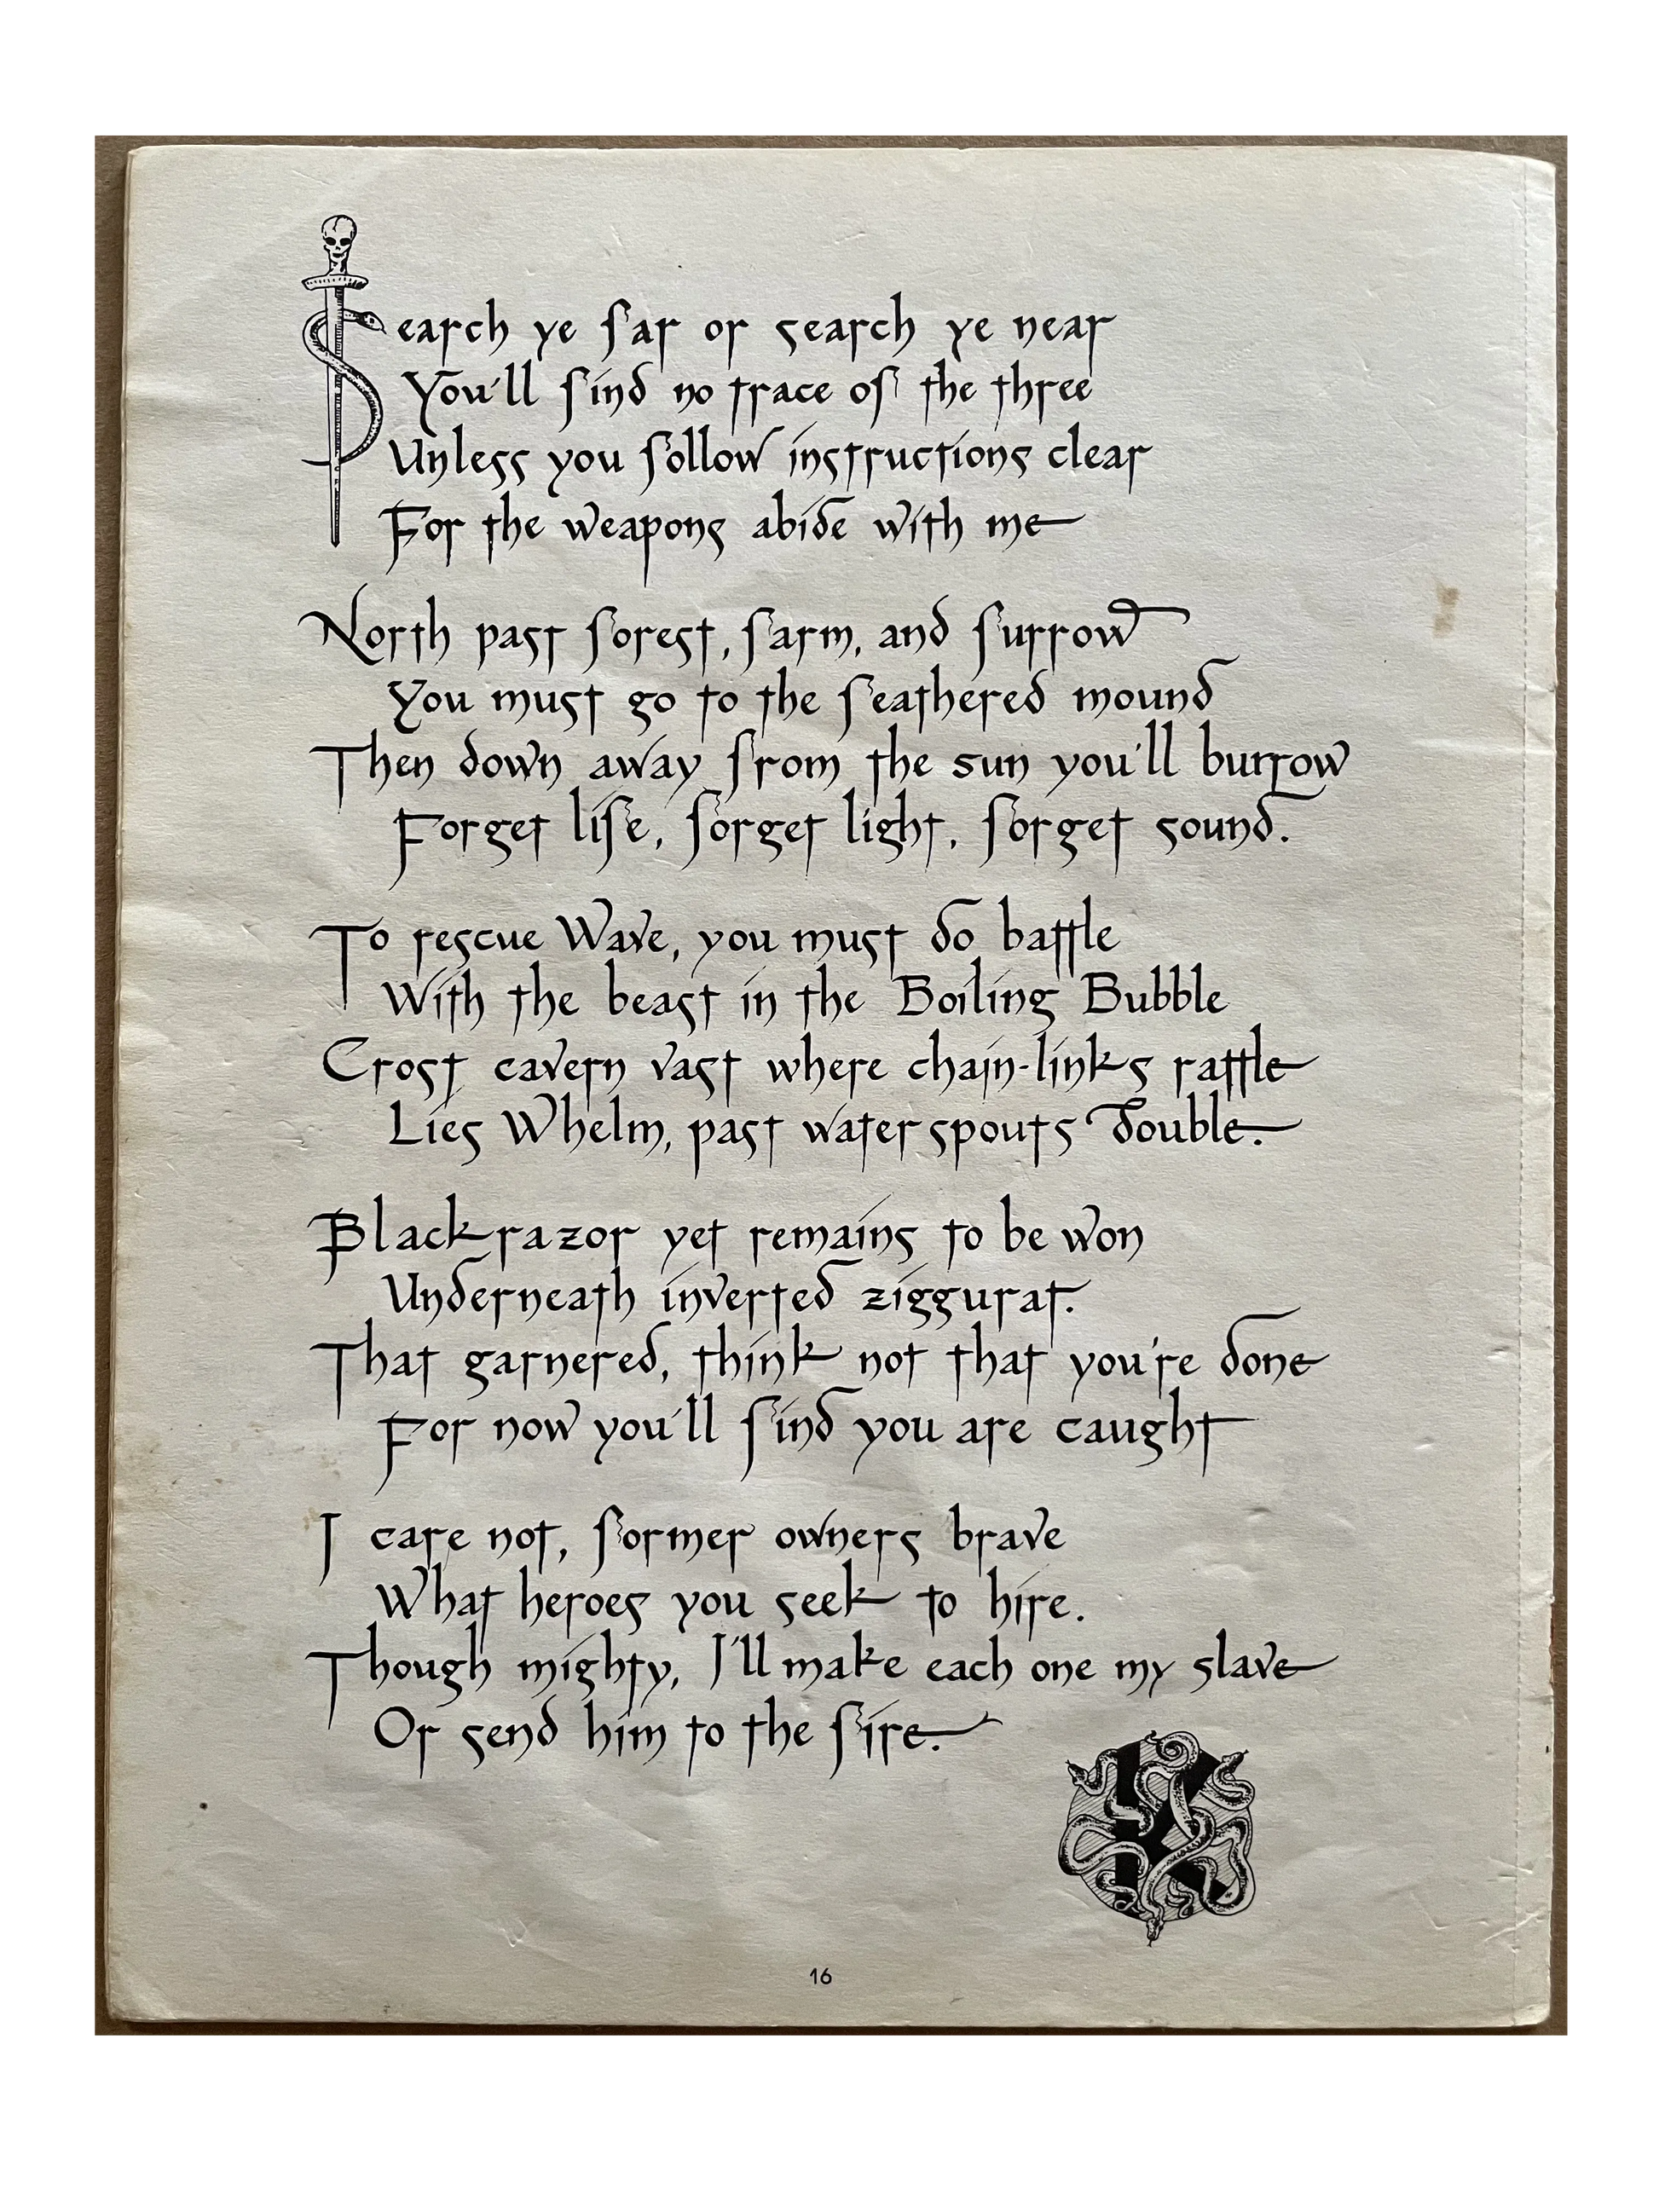 Search ye far or search ye near
You'll find no trace of the three
Unless you follow instructions clear
For the weapons abide with me
North past forest, farm, and furrow
You must go to the feathered mound
Then down away from the sun you'll burrow
Forget life, forget light, forget sound.
To rescue Wave, you must do battle
With the beast in the Boiling Bubble
Crost cavern vast where chain-links rattle
Lies Whelm, past waterspouts double.
Blackrazor yet remains to be won
Underneath inverted ziggurat.
That garnered, think not that you're done
For now you'll find you are caught
I care not, former owners brave
What heroes you seek to hire.
Though mighty, I'll make each one my slave
Or send him to the fire.
K
16